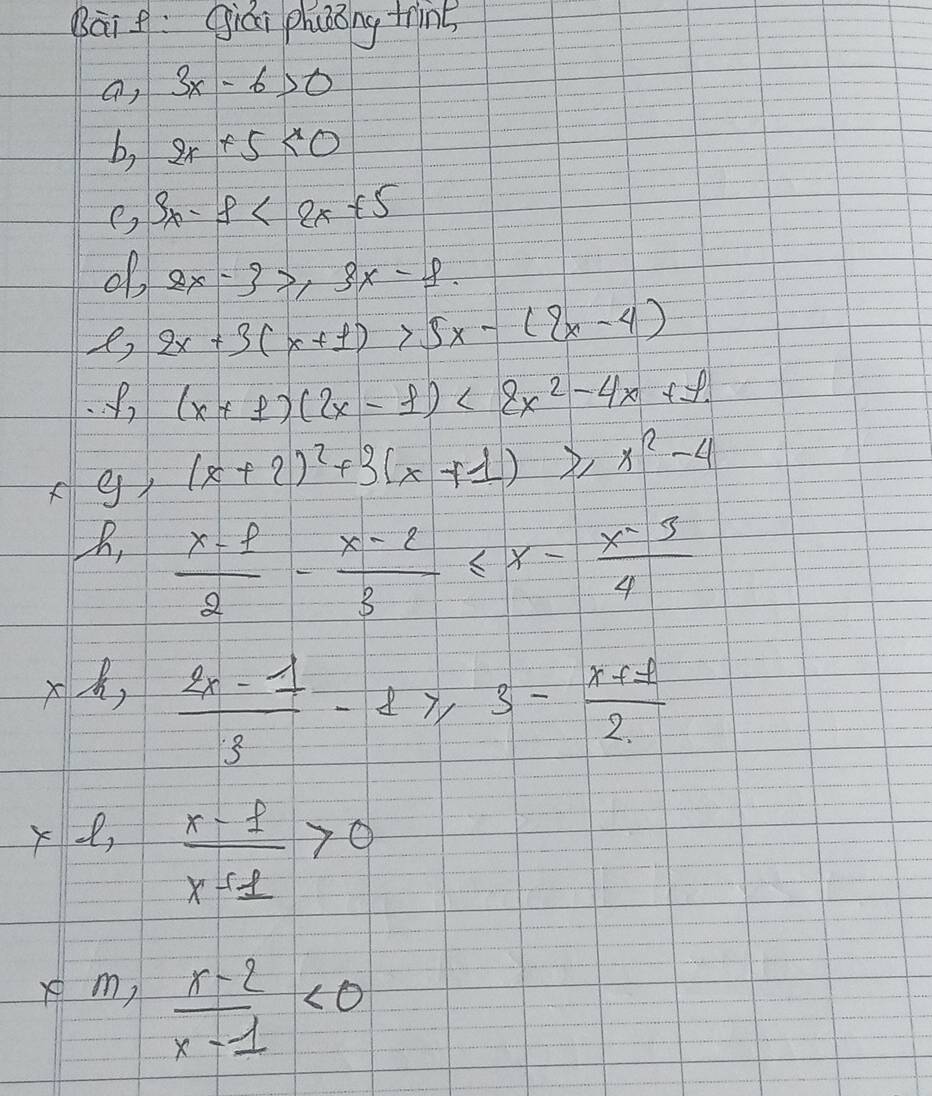 Bài 1: Giải phương trình
a, 3x - 6 > 0
b, 2x + 5 < 0
c, 3x - 1 < 2x + 5
d, 2x - 3 ≥ 3x - 1.
e, 2x + 3(x + 1) > 5x - (2x - 4)
f, (x + 1)(2x - 1) < 2x² - 4x + 1.
x g, (x + 2)² + 3(x + 1) ≥ x² - 4
h, (x - 1)/2 - (x - 2)/3 ≤ x - (x - 3)/4
x k, (2x - 1)/3 - 1 ≥ 3 - (x + 1)/2.
x l, (x - 1)/(x + 1) > 0
x m, (x - 2)/(x - 1) < 0